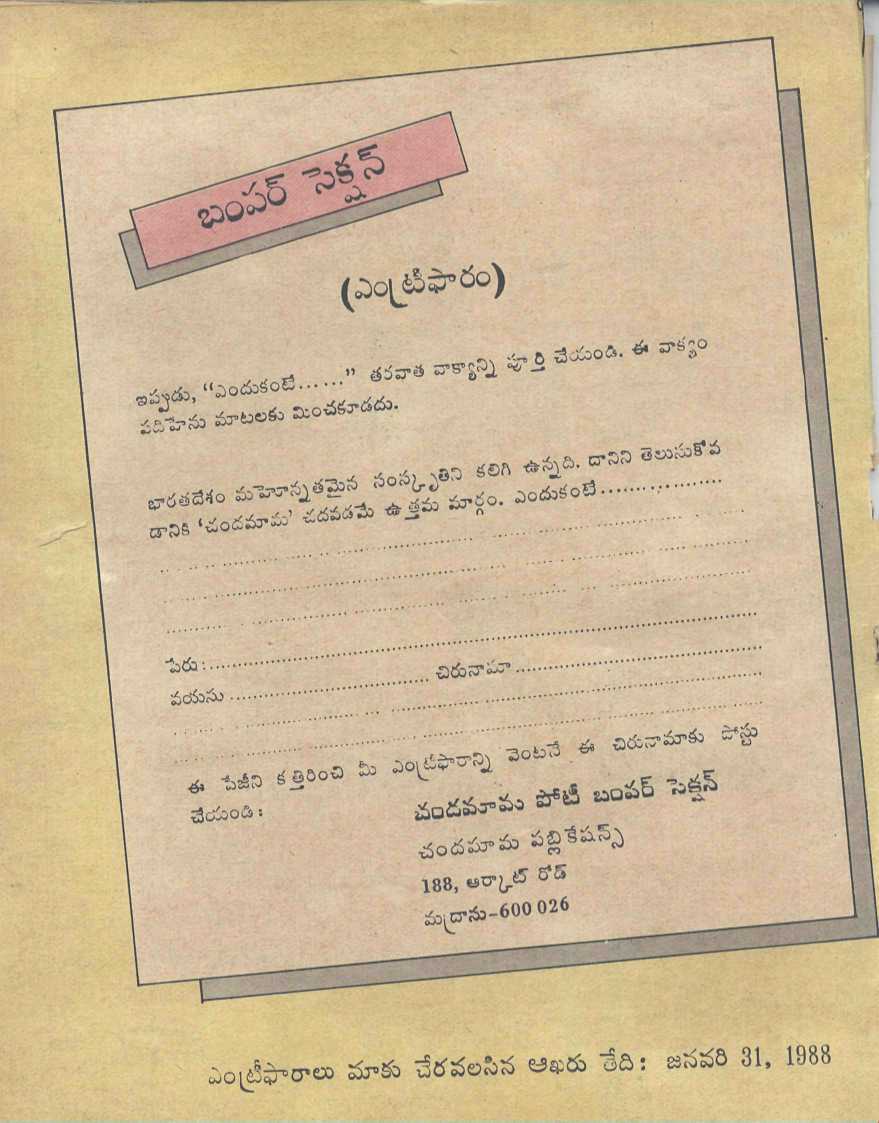 బంపర్ సెక్షన్
(ఎంట్రీఫారం)
ఇప్పుడు, “ఎందుకంటే......” తరవాత వాక్యాన్ని పూర్తి చేయండి. ఈ వాక్యం
పదిహేను మాటలకు మించకూడదు.
భారతదేశం మహోన్నతమైన సంస్కృతిని కలిగి ఉన్నది. దానిని తెలుసుకోవ
డానికి ‘చందమామ’ చదవడమే ఉత్తమ మార్గం. ఎందుకంటే.................
పేరు :..........................................................................
వయసు ................................. చిరునామా ..........................................
ఈ పేజీని కత్తిరించి మీ ఎంట్రీఫారాన్ని వెంటనే ఈ చిరునామాకు పోస్టు
చేయండి :
చందమామ పోటీ బంపర్ సెక్షన్
చందమామ పబ్లికేషన్స్
188, ఆర్కాట్ రోడ్
మద్రాసు-600 026
ఎంట్రీఫారాలు మాకు చేరవలసిన ఆఖరు తేది : జనవరి 31, 1988